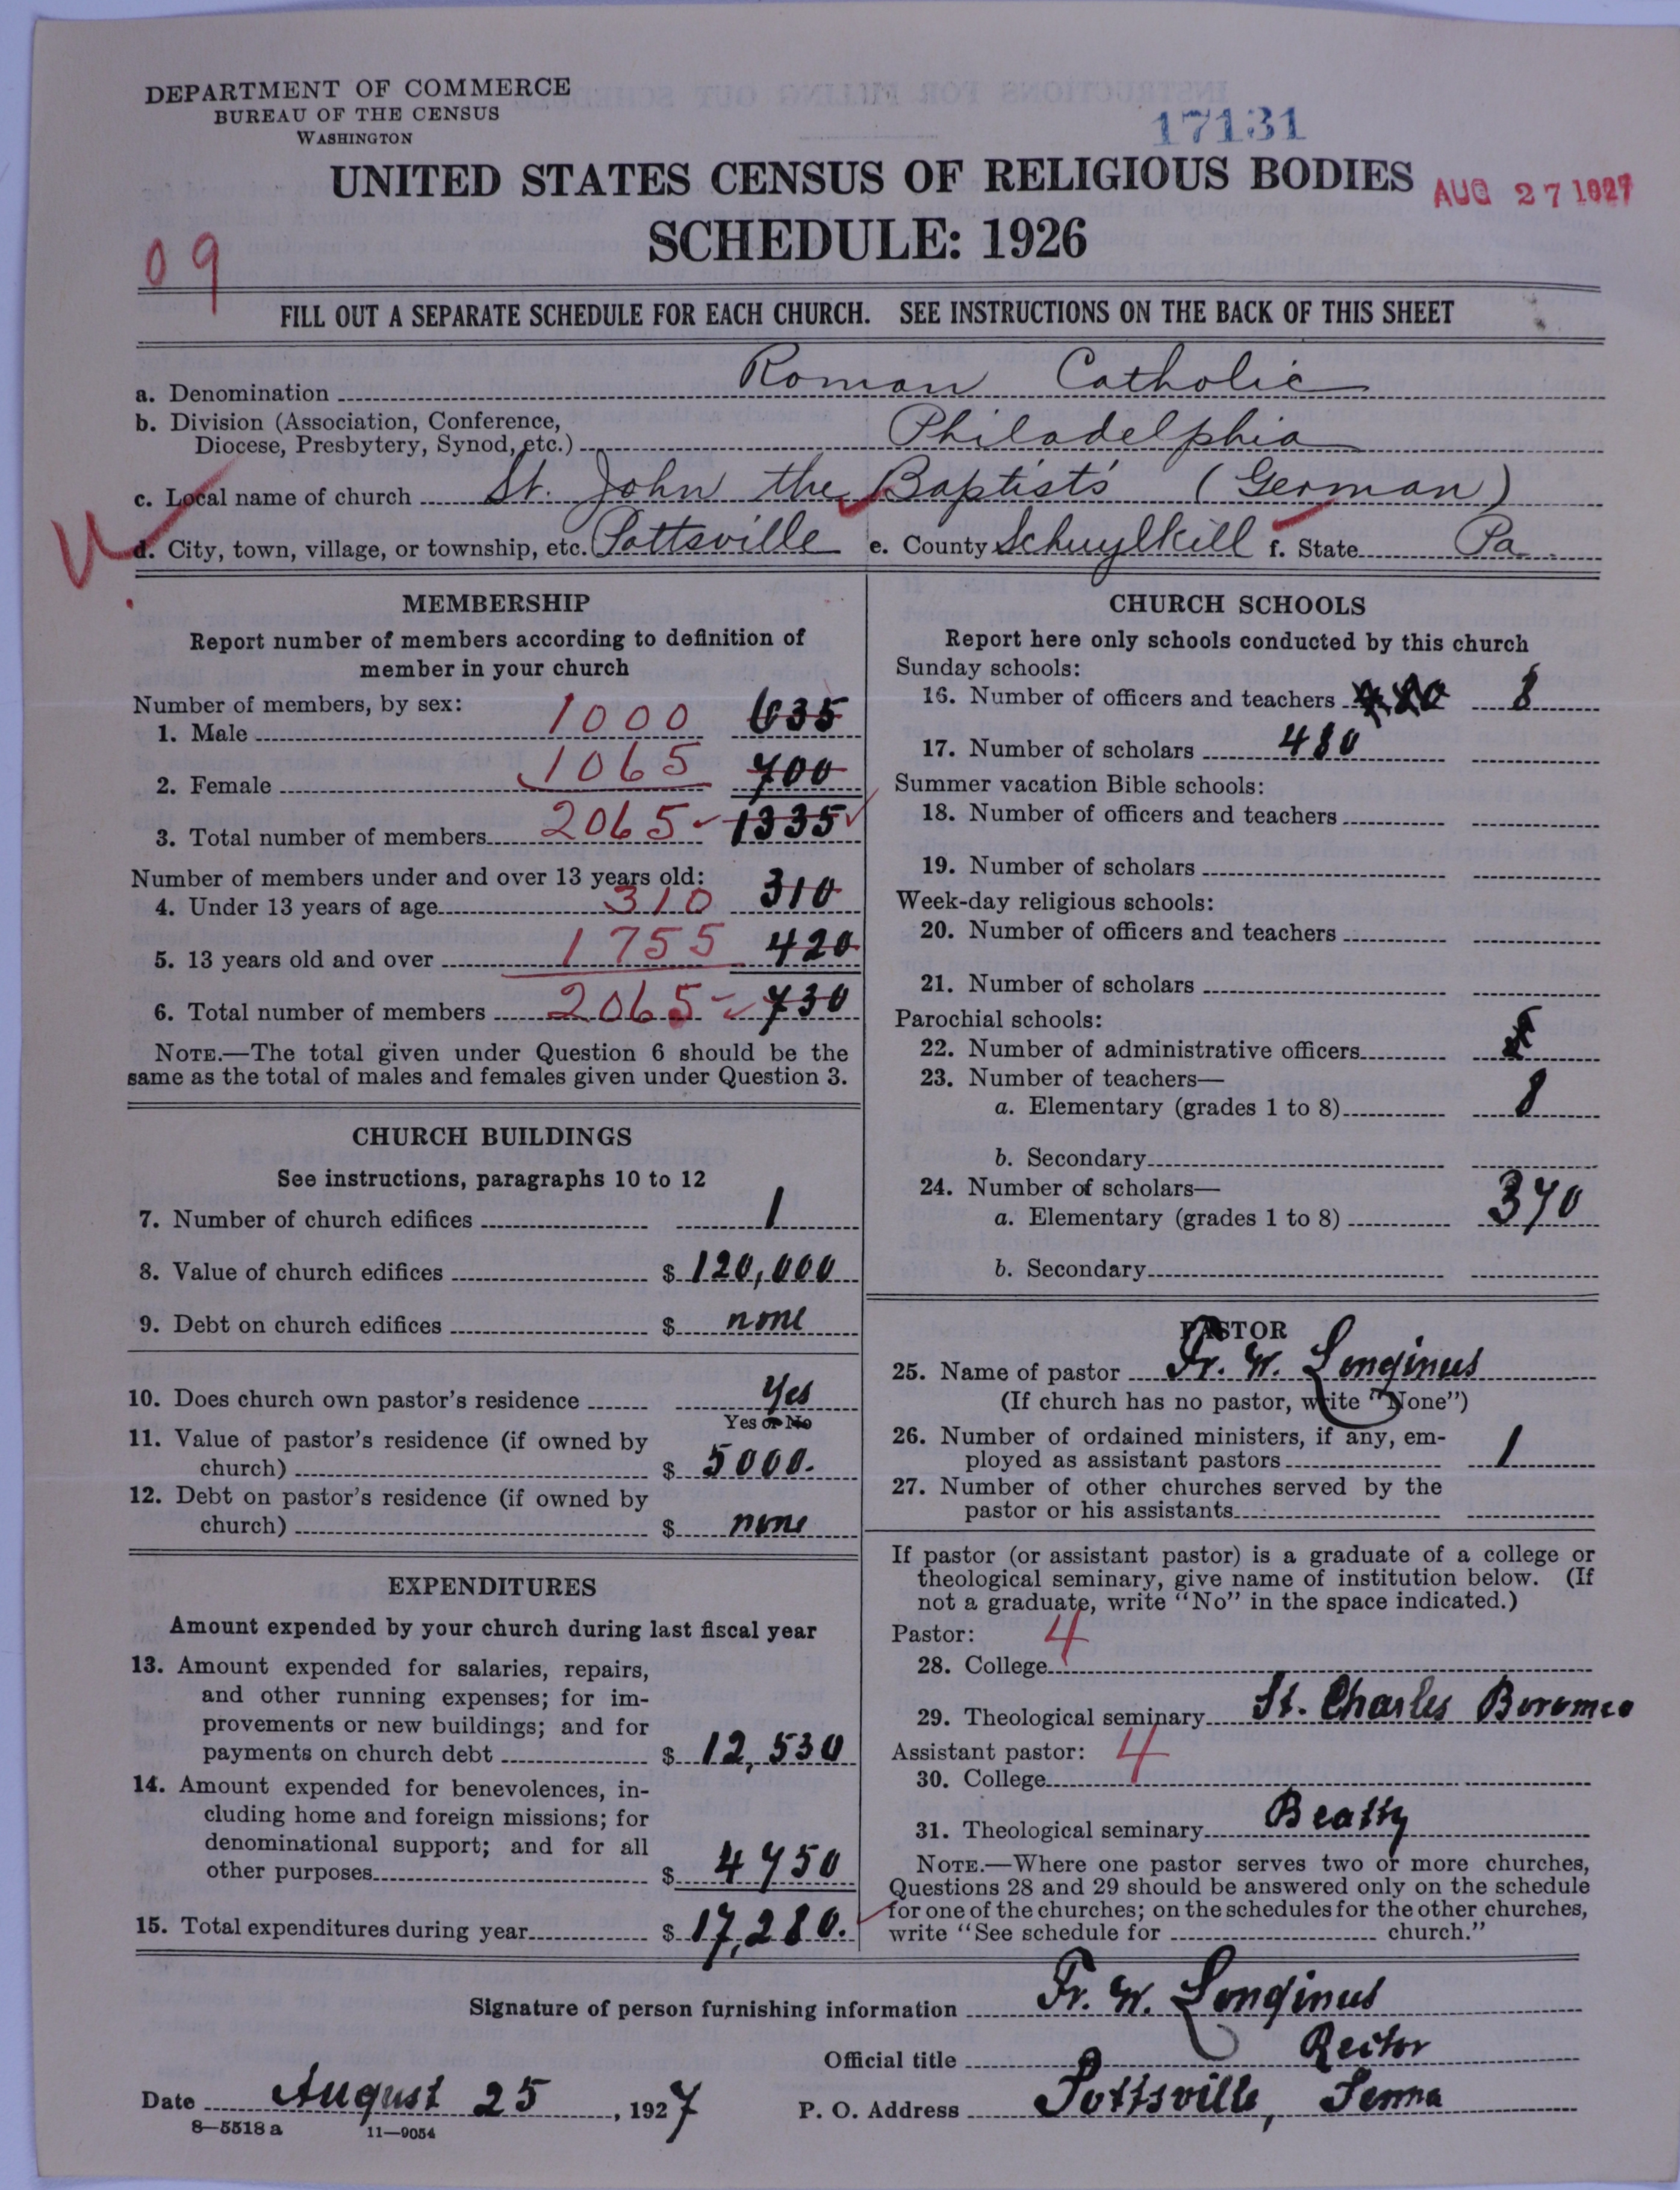 DEPARTMENT OF COMMERCE
BUREAU OF THE CENSUS
WASHINGTON
17131
UNITED STATES CENSUS OF RELIGIOUS BODIES
AUG 27 1927
SCHEDULE: 1926
09
FILL OUT A SEPARATE SCHEDULE FOR EACH CHURCH. SEE INSTRUCTIONS ON THE BACK OF THIS SHEET
a. Denomination Roman Catholic
b. Division (Association, Conference,
Diocese, Presbytery, Synod, etc.) Philadelphia
c. Local name of church St. John the Baptist's (German)
d. City, town, village, or township, etc. Pottsville e. County Schuylkill f. State Pa.
MEMBERSHIP
Report number of members according to definition of
member in your church
Number of members, by sex:
1. Male 1000 635
2. Female 1065 700
3. Total number of members 2065 1335
Number of members under and over 13 years old:
4. Under 13 years of age 310 310
5. 13 years old and over 1755 420
6. Total number of members 2065 730
NOTE.—The total given under Question 6 should be the
same as the total of males and females given under Question 3.
CHURCH BUILDINGS
See instructions, paragraphs 10 to 12
7. Number of church edifices 1
8. Value of church edifices $ 120,000
9. Debt on church edifices $ none
10. Does church own pastor's residence Yes
Yes or No
11. Value of pastor's residence (if owned by
church) $ 5000.
12. Debt on pastor's residence (if owned by
church) $ none
EXPENDITURES
Amount expended by your church during last fiscal year
13. Amount expended for salaries, repairs,
and other running expenses; for im-
provements or new buildings; and for
payments on church debt $ 12,530
14. Amount expended for benevolences, in-
cluding home and foreign missions; for
denominational support; and for all
other purposes $ 4750
15. Total expenditures during year $ 17,280.
CHURCH SCHOOLS
Report here only schools conducted by this church
Sunday schools:
16. Number of officers and teachers 8
17. Number of scholars 480
Summer vacation Bible schools:
18. Number of officers and teachers
19. Number of scholars
Week-day religious schools:
20. Number of officers and teachers
21. Number of scholars
Parochial schools:
22. Number of administrative officers
23. Number of teachers—
a. Elementary (grades 1 to 8) 8
b. Secondary
24. Number of scholars—
a. Elementary (grades 1 to 8) 370
b. Secondary
PASTOR
25. Name of pastor Fr. W. Longinus
(If church has no pastor, write "None")
26. Number of ordained ministers, if any, em-
ployed as assistant pastors 1
27. Number of other churches served by the
pastor or his assistants
If pastor (or assistant pastor) is a graduate of a college or
theological seminary, give name of institution below. (If
not a graduate, write "No" in the space indicated.)
Pastor: 4
28. College
29. Theological seminary St. Charles Boromeo
Assistant pastor: 4
30. College
31. Theological seminary Beatty
NOTE.—Where one pastor serves two or more churches,
Questions 28 and 29 should be answered only on the schedule
for one of the churches; on the schedules for the other churches,
write "See schedule for church."
Signature of person furnishing information Fr. W. Longinus
Official title Rector
Date August 25, 1927 P. O. Address Pottsville, Penna
8—5518 a 11—9054